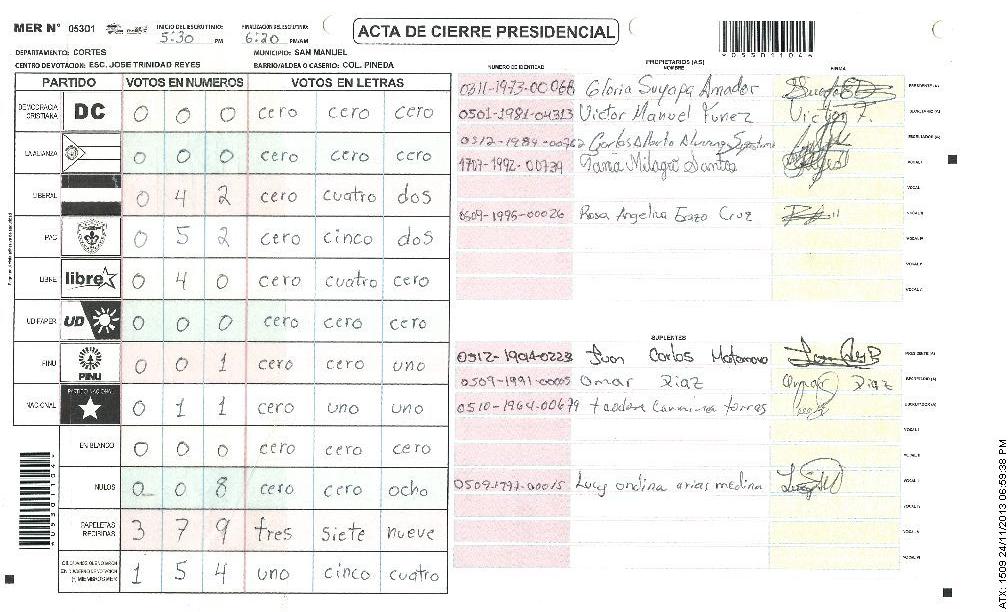 MER N° 05301 INICIO DEL ESCRUTINIO: 5:30 PM FINALIZACIÓN DEL ESCRUTINIO: 6:20 PM/AM
ACTA DE CIERRE PRESIDENCIAL
DEPARTAMENTO: CORTES MUNICIPIO: SAN MANUEL
CENTRO DE VOTACION: ESC. JOSE TRINIDAD REYES BARRIO/ALDEA O CASERIO: COL. PINEDA
PARTIDO VOTOS EN NUMEROS VOTOS EN LETRAS
DEMOCRACIA CRISTIANA DC 0 0 0 cero cero cero
LA ALIANZA 0 0 0 cero cero cero
LIBERAL 0 4 2 cero cuatro dos
PAC 0 5 2 cero cinco dos
LIBRE libre 0 4 0 cero cuatro cero
UD FAPER UD 0 0 0 cero cero cero
PINU PINU 0 0 1 cero cero uno
NACIONAL PARTIDO NACIONAL 0 1 1 cero uno uno
EN BLANCO 0 0 0 cero cero cero
NULOS 0 0 8 cero cero ocho
PAPELETAS RECIBIDAS 3 7 9 tres siete nueve
1 5 4 uno cinco cuatro
PROPIETARIOS (AS)
NUMERO DE IDENTIDAD NOMBRE FIRMA
0311-1973-00068 Gloria Suyapa Amador PRESIDENTE (A)
0501-1981-04313 Victor Manuel Funez Victor F. SECRETARIO (A)
Carlos Alberto ESCRUTADOR (A)
1707-1992-00739 Tania Milagro Santos VOCAL I
VOCAL II
0509-1995-00026 Rosa Angelina Erazo Cruz VOCAL III
VOCAL IV
VOCAL V
SUPLENTES
Juan Carlos PRESIDENTE (A)
0509-1991-00005 Omar Diaz Omar Diaz SECRETARIO (A)
0510-1964-00679 torres ESCRUTADOR (A)
Lucy ondina arias medina
ATX: 1509 24/11/2013 06:59:38 PM